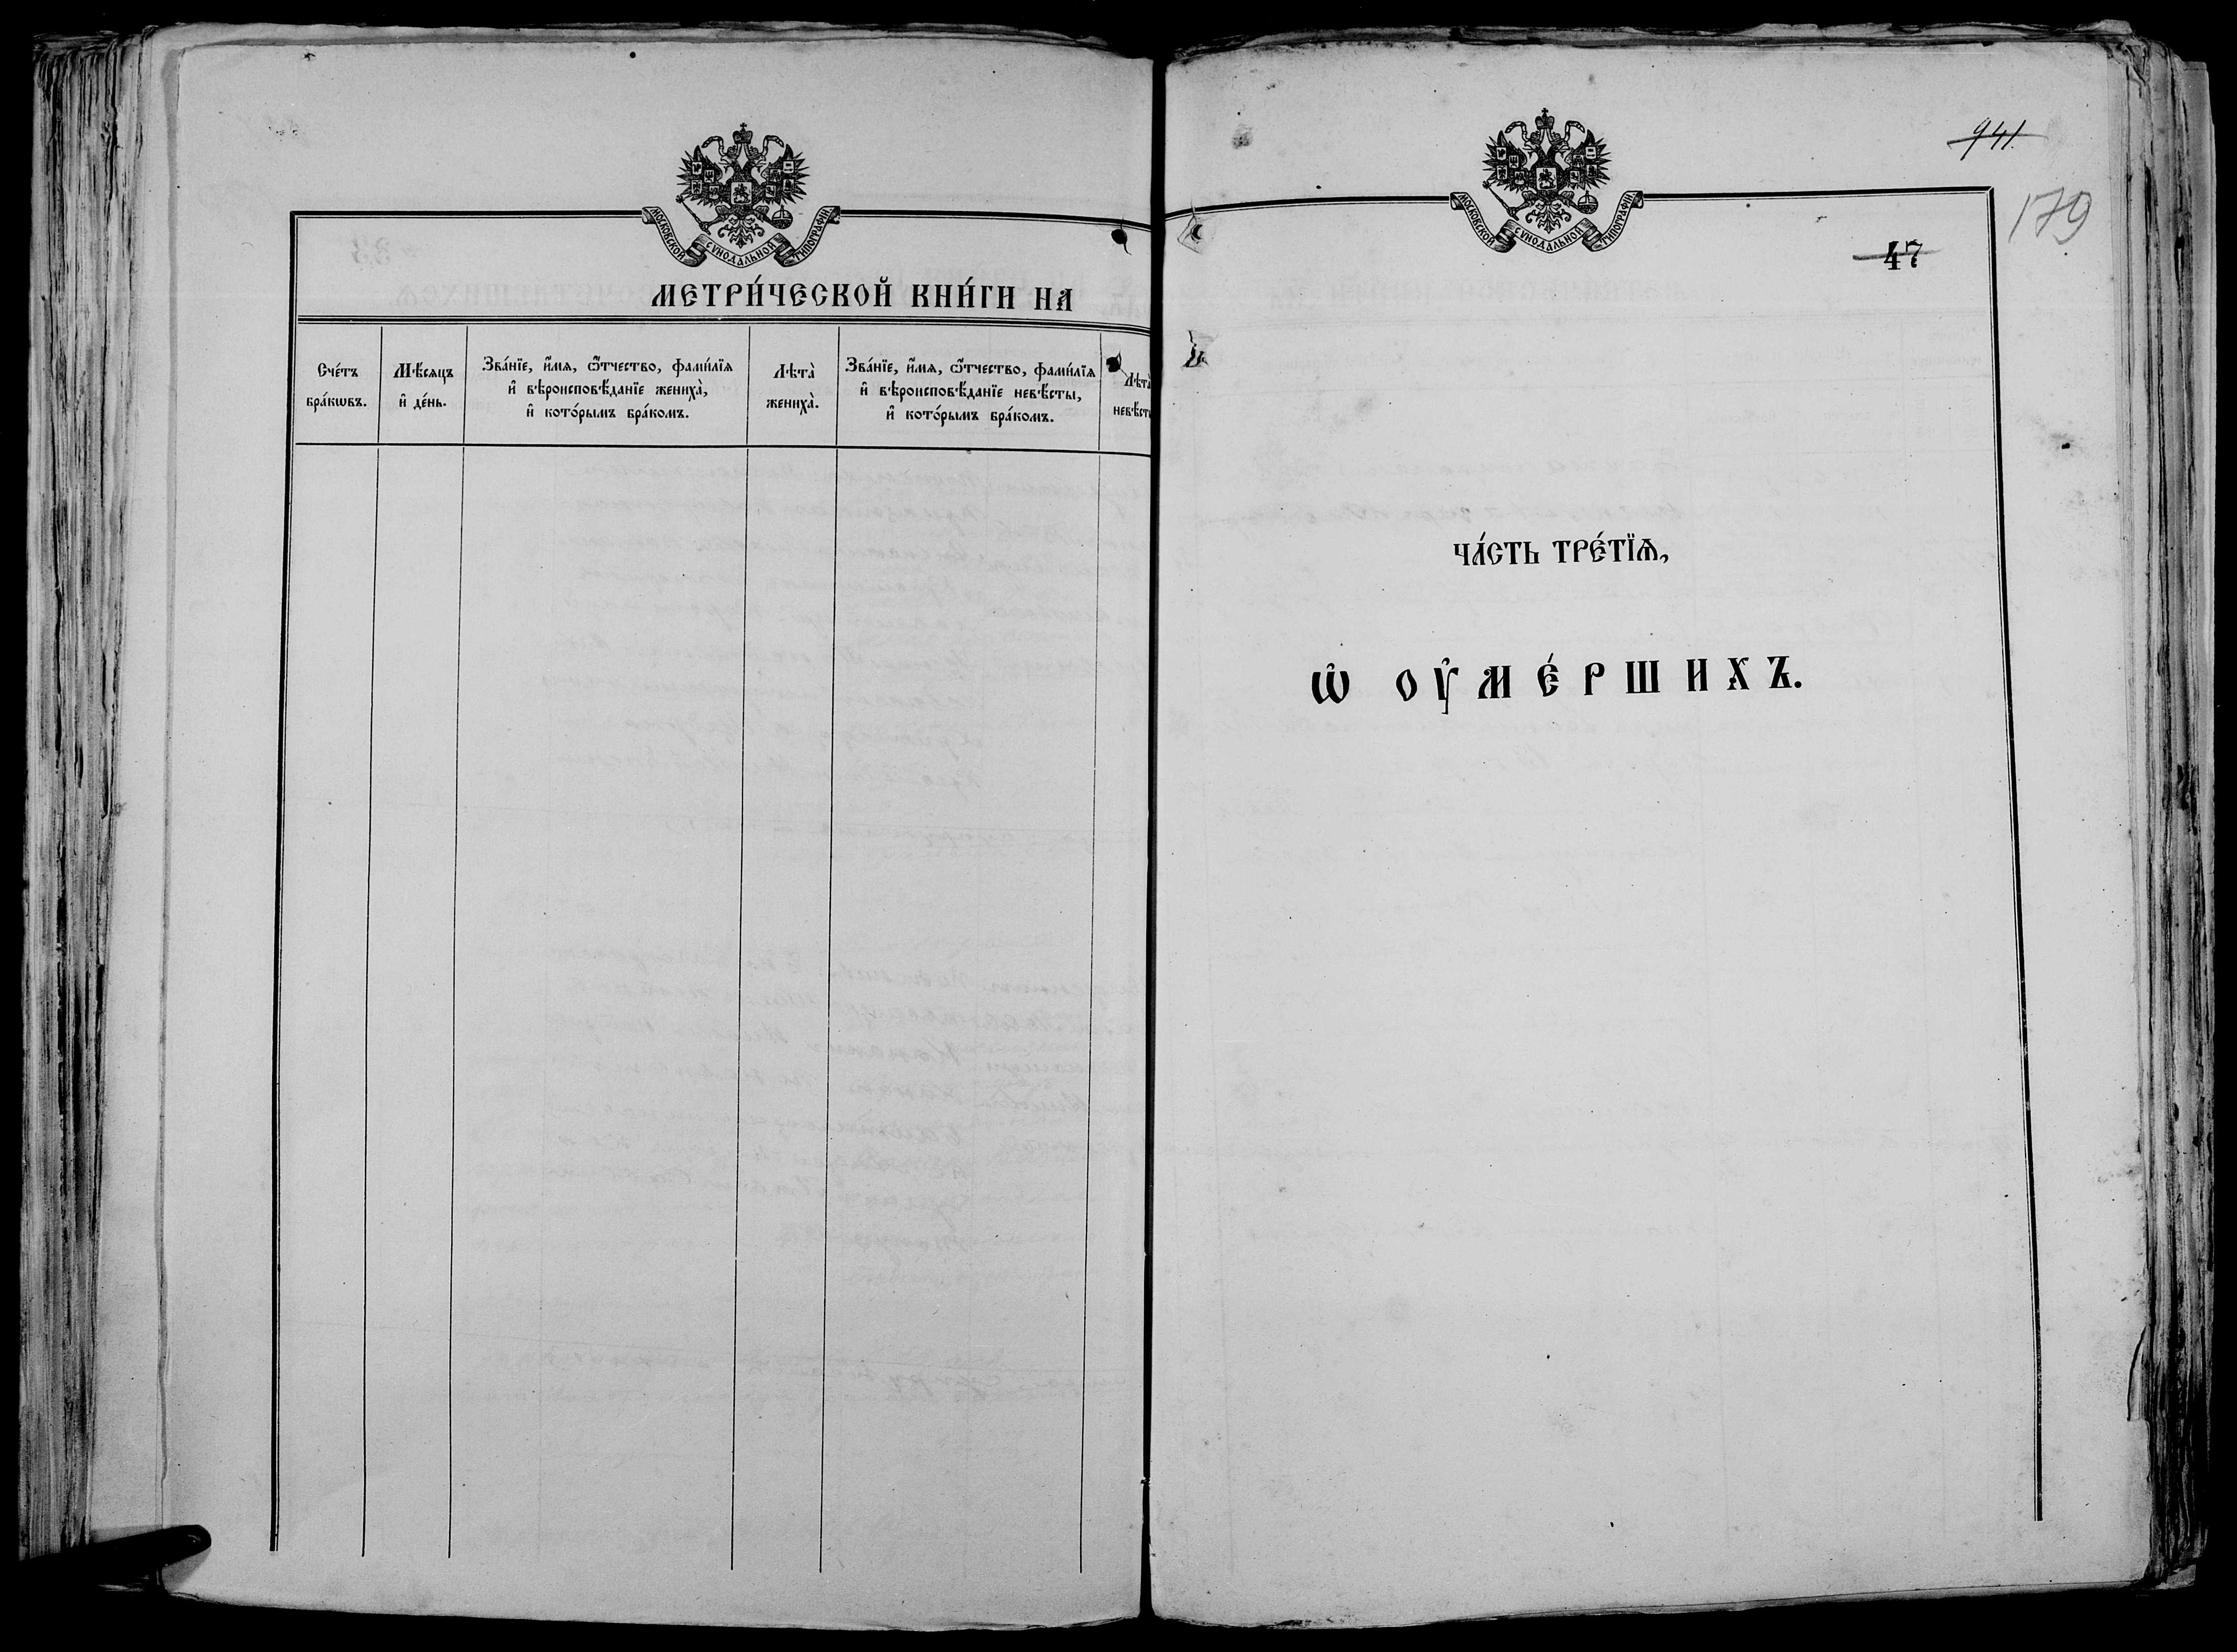 МОСКОВСКОЙ СѴНОДАЛЬНОЙ ТИПОГРАФІИ
МЕТРИ́ЧЕСКОЙ КНИ́ГИ НА
Сче́тъ
бра́кѡвъ.
Мѣ́сяцъ
и҆ де́нь.
Зва́нїе, и҆́мѧ, ѻ҆́тчество, фами́лїѧ
и҆ вѣроисповѣ́данїе жениха̀,
и҆ кото́рымъ бра́комъ.
Лѣта̀
жениха̀.
Зва́нїе, и҆́мѧ, ѻ҆́тчество, фами́лїѧ
и҆ вѣроисповѣ́данїе невѣ́сты,
и҆ кото́рымъ бра́комъ.
Лѣта̀
невѣ́ст
941.
179
МОСКОВСКОЙ СѴНОДАЛЬНОЙ ТИПОГРАФІИ
47
ЧА́СТЬ ТРЕ́ТЇѦ,
Ѡ҆ ОУ҆МЕ́РШИХЪ.